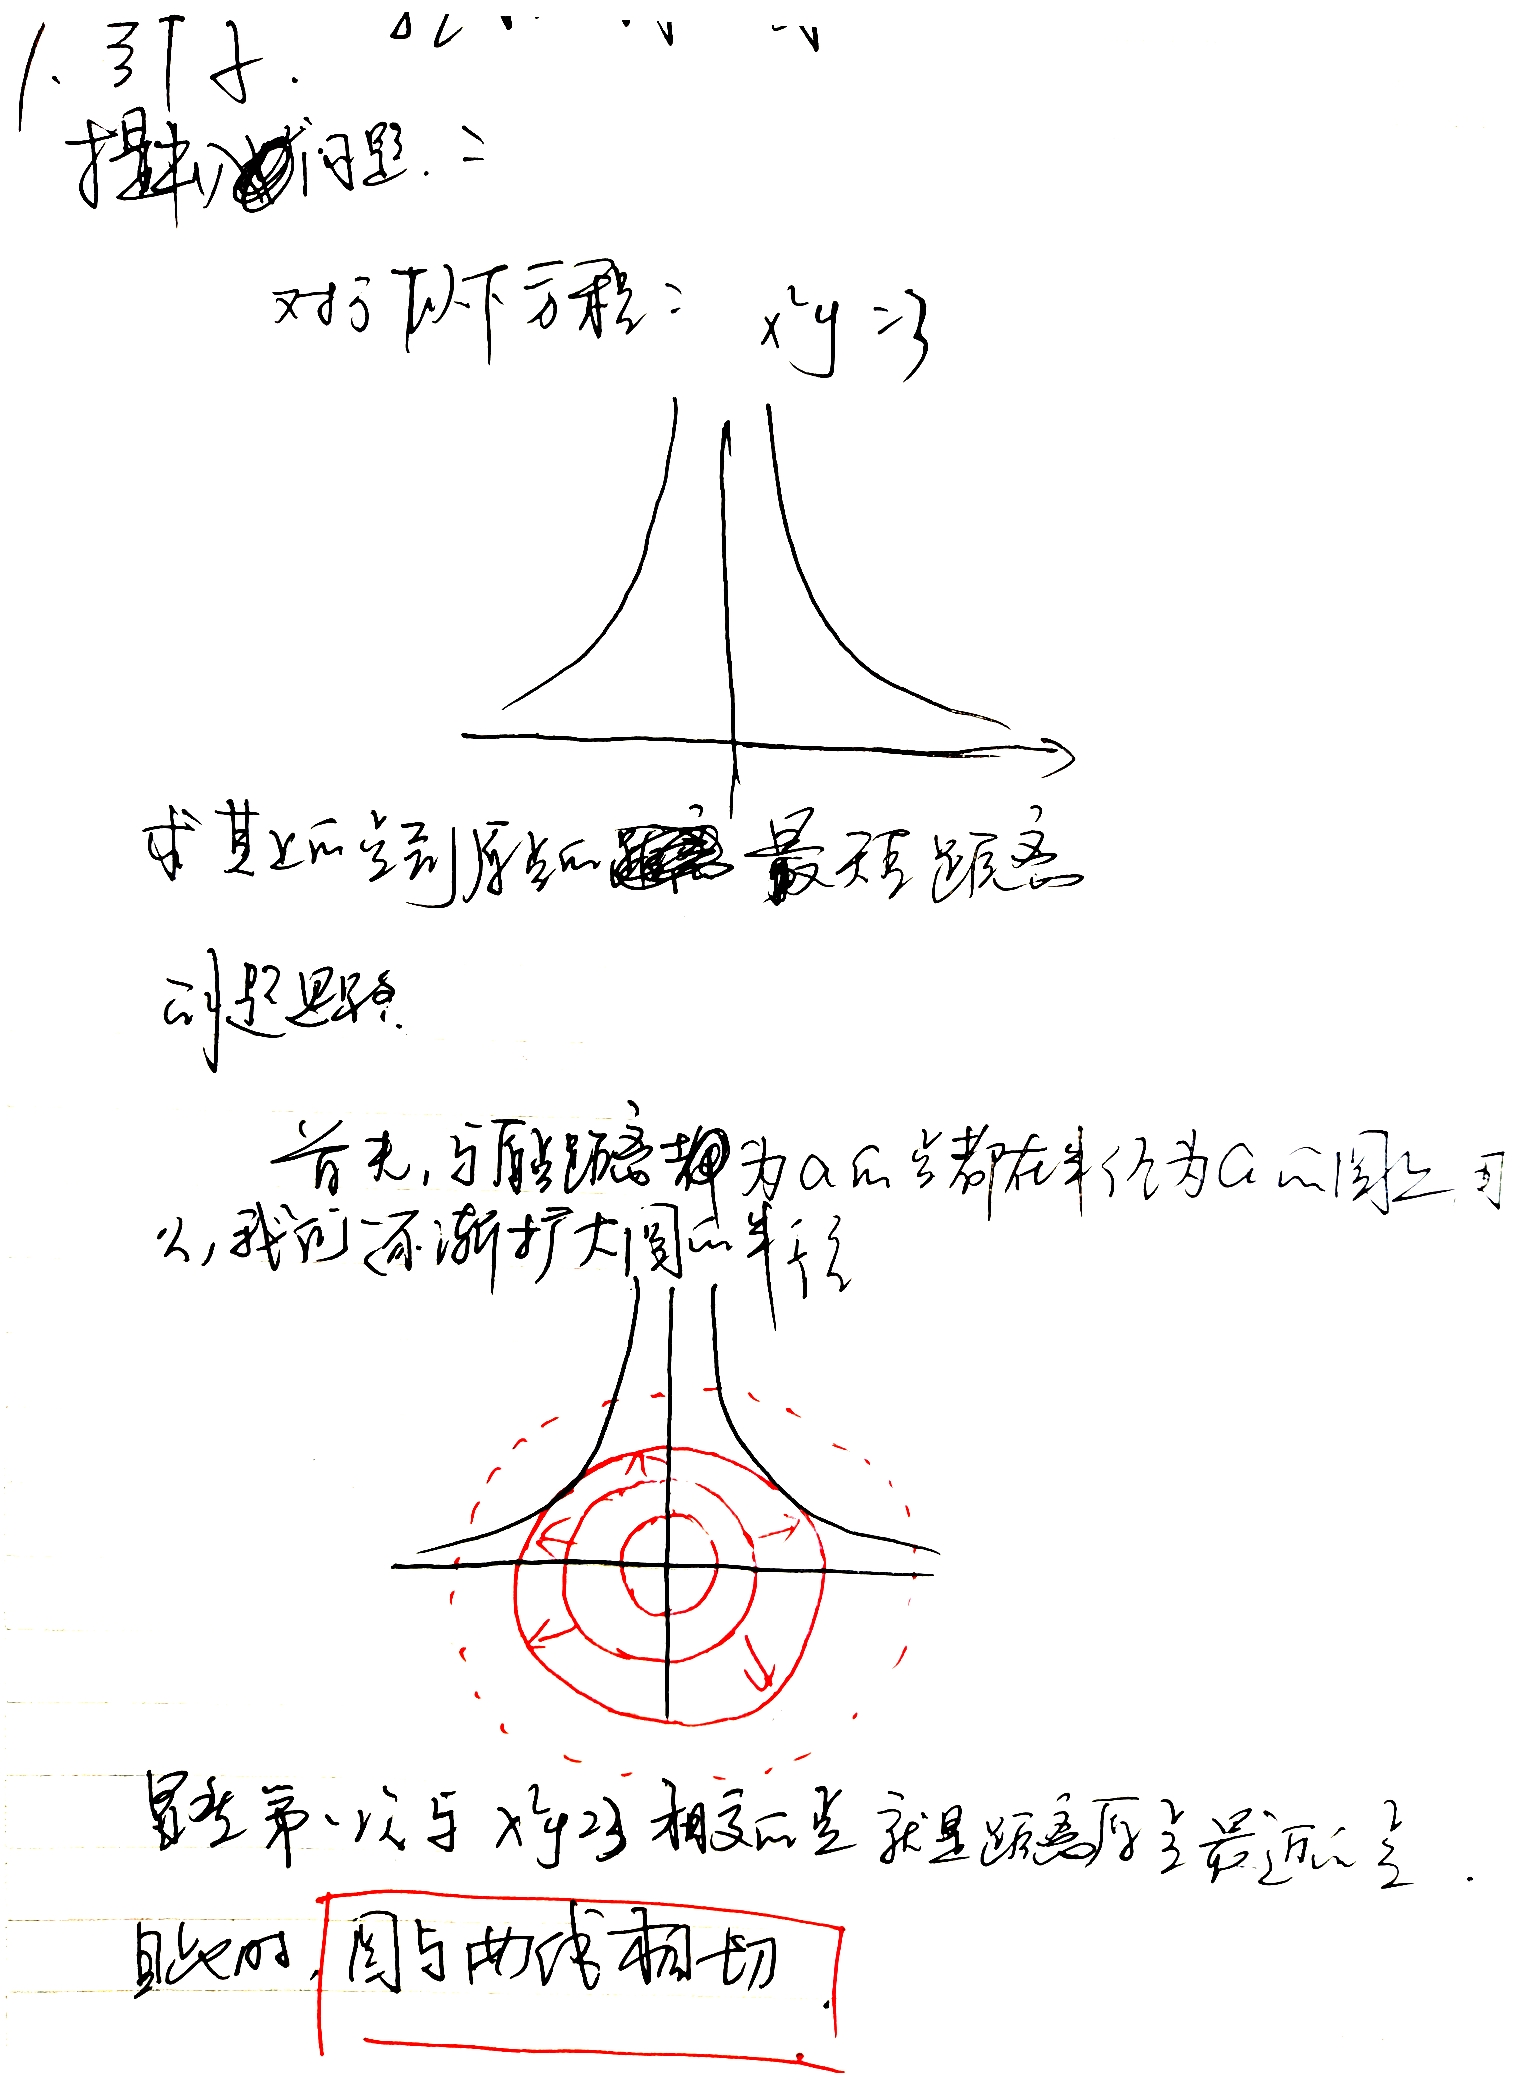 1. 引子.
提出问题:
对于以下方程: x²y=3
求其上的点到原点的最短距离
问题思路.
首先,与原点距离为a的点都在半径为a的圆上.可
以,我们逐渐扩大圆的半径
显然第一次与x²y=3相交的点就是距离原点最近的点.
且此时,圆与曲线相切.